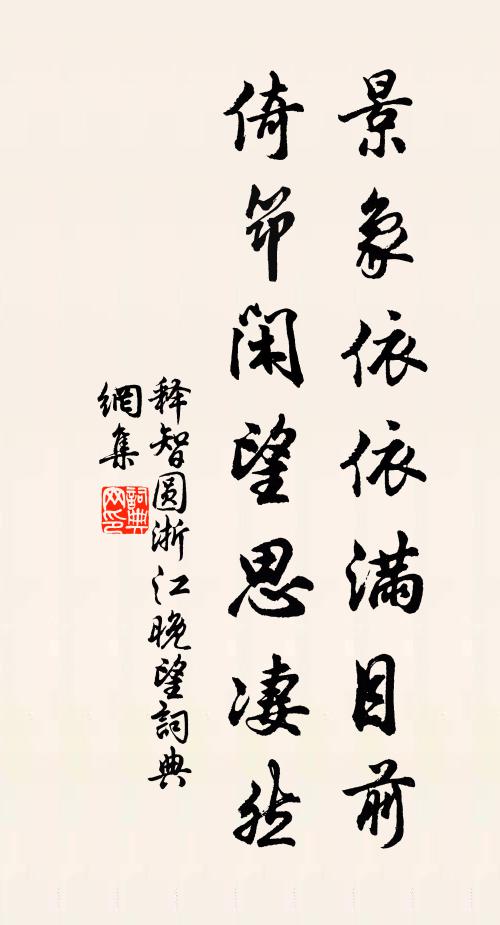 景象依依满目前
倚筇闲望思凄然
释智圆浙江晚望词典
網集
詞典
网印